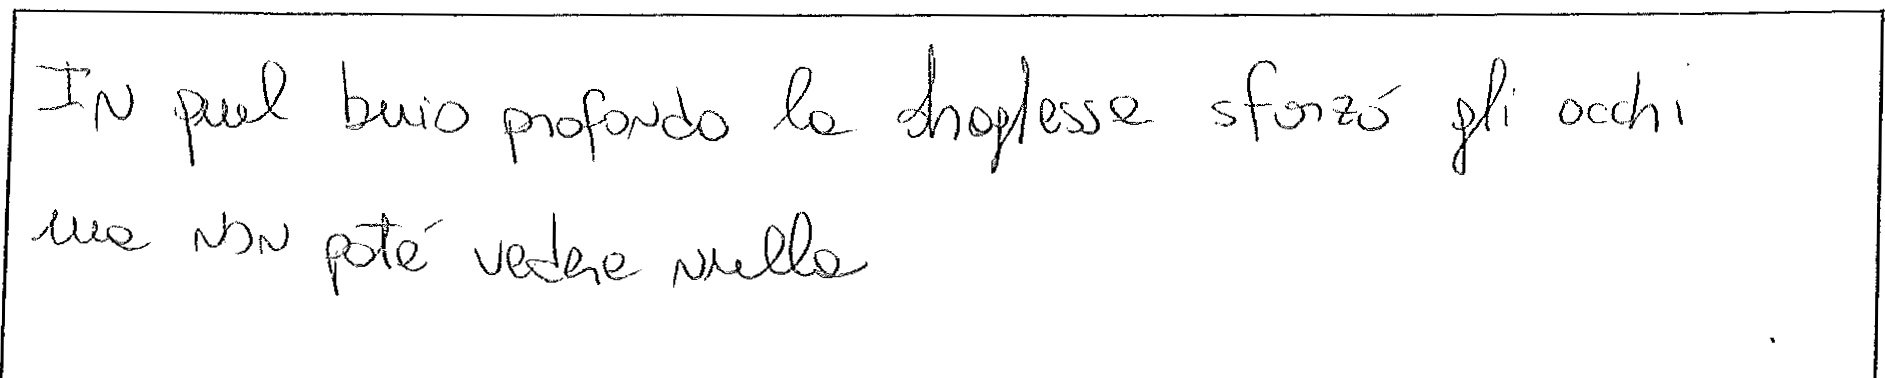 In quel buio profondo la dragessa sforzó gli occhi
ma non poté vedere nulla